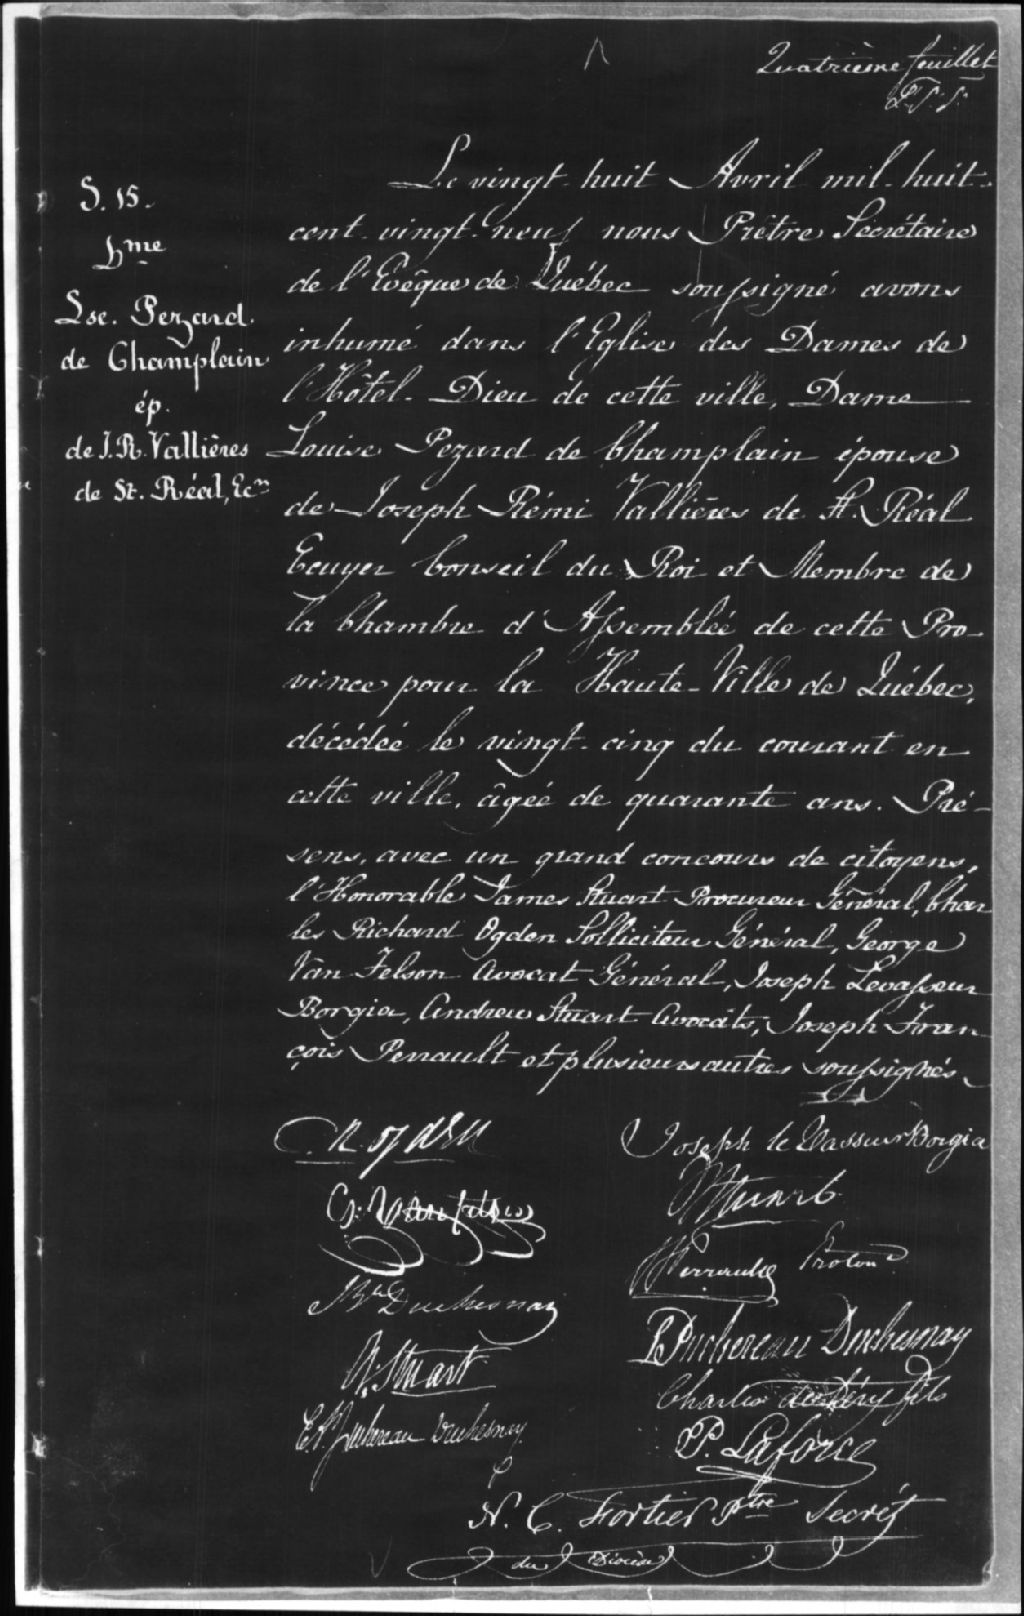 Quatrième feuillet
S. 15.
Dme
Lse. Pezard.
de Champlain
ép.
de J. R. Vallières
de St. Réal, Ecr
Le vingt-huit Avril mil-huit-
cent-vingt-neuf nous Prêtre Secrétaire
de l'Evêque de Québec soussigné avons
inhumé dans l'Eglise des Dames de
l'Hôtel-Dieu de cette ville, Dame
Louise Pezard de Champlain épouse
de Joseph Rémi Vallières de St. Réal
Ecuyer Conseil du Roi et Membre de
la Chambre d'Assemblée de cette Pro-
vince pour la Haute-Ville de Québec,
décédée le vingt-cinq du courant en
cette ville, âgée de quarante ans. Pré-
sens, avec un grand concours de citoyens,
l'Honorable James Stuart Procureur Général, Char
les Richard Ogden Solliciteur Général, George
Van Felson Avocat Général, Joseph Levasseur
Borgia, Andrew Stuart Avocats, Joseph Fran
çois Perrault et plusieurs autres soussignés.
C. R. Ogden
Joseph le Vasseur Borgia
G. Vanfelson
Stuart
Perrault Proton
Duchesnay
A. Stuart
Duchereau Duchesnay
Charles deLéry fils
Juchereau Duchesnay
P. Laforce
N. C. Fortier Ptre Secrét
du Diocèse